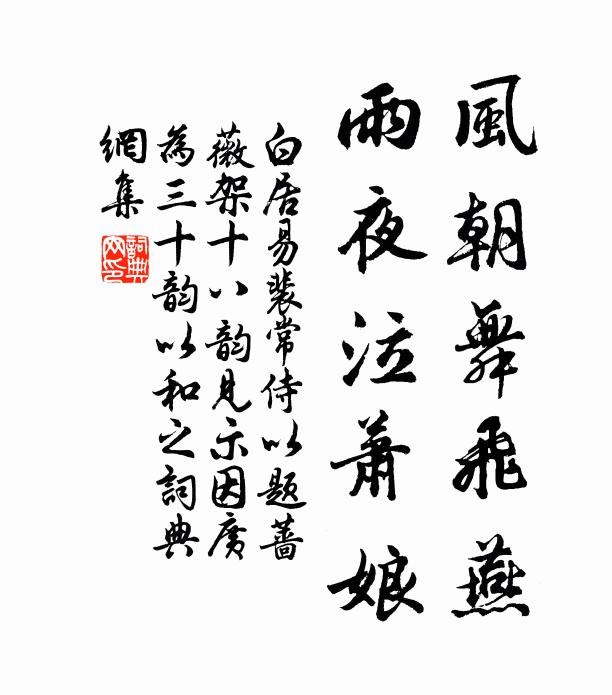 風朝舞飛燕
雨夜泣蕭娘
白居易裴常侍以題薔
薇架十八韵見示因廣
為三十韵以和之詞典
網集
詞典
网印